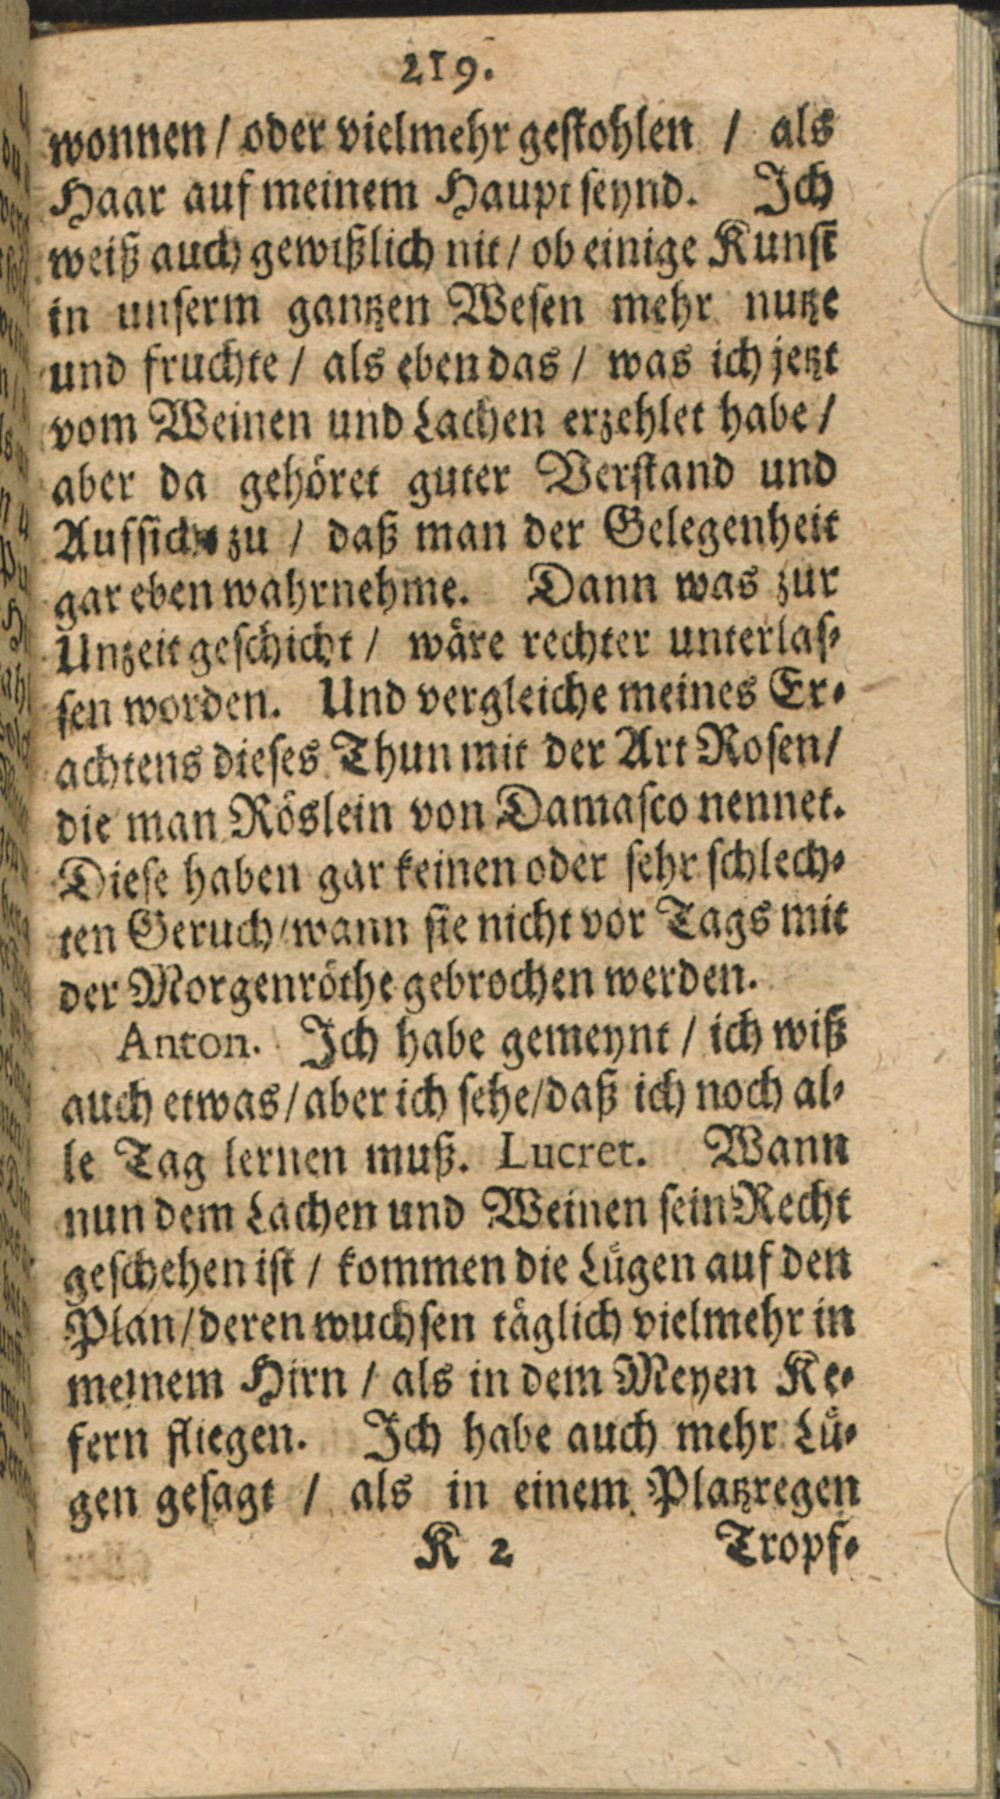 219.
wonnen / oder vielmehr gestohlen / als
Haar auf meinem Haupt seynd. Ich
weiß auch gewißlich nit / ob einige Kunst
in unserm gantzen Wesen mehr nutze
und fruchte / als eben das / was ich jetzt
vom Weinen und Lachen erzehlet habe /
aber da gehöret guter Verstand und
Aufsicht zu / daß man der Gelegenheit
gar eben wahrnehme. Dann was zur
Unzeit geschicht / wäre rechter unterlas-
sen worden. Und vergleiche meines Er-
achtens dieses Thun mit der Art Rosen /
die man Röslein von Damasco nennet.
Diese haben gar keinen oder sehr schlech-
ten Geruch / wann sie nicht vor Tags mit
der Morgenröthe gebrochen werden.
Anton. Ich habe gemeynt / ich wiß
auch etwas / aber ich sehe / daß ich noch al-
le Tag lernen muß. Lucret. Wann
nun dem Lachen und Weinen sein Recht
geschehen ist / kommen die Lügen auf den
Plan / deren wuchsen täglich vielmehr in
meinem Hirn / als in dem Meyen Ke-
fern fliegen. Ich habe auch mehr Lü-
gen gesagt / als in einem Platzregen
K 2 Tropf-